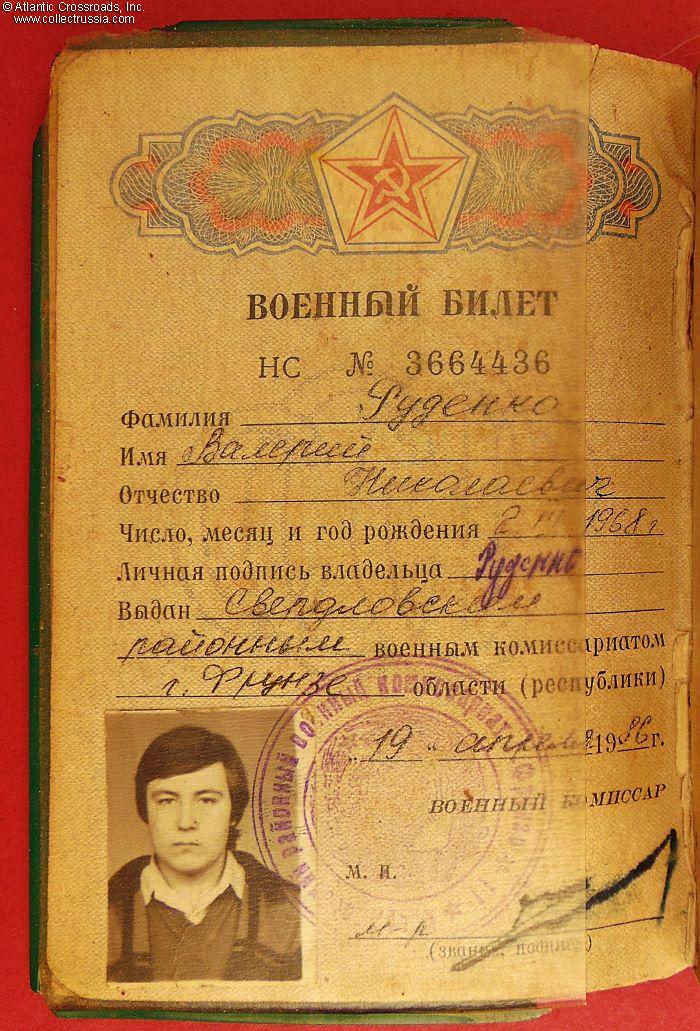 © Atlantic Crossroads, Inc.
www.collectrussia.com
ВОЕННЫЙ БИЛЕТ
НС № 3664436
Фамилия Руденко
Имя Валерий
Отчество Николаевич
Число, месяц и год рождения 2 III 1968 г
Личная подпись владельца Руденко
Выдан Свердловским
районным военным комиссариатом
г. Фрунзе области (республики)
„19" апреля 1986 г.
ВОЕННЫЙ КОМИССАР
М. П.
м-р
(звание, подпись)
РАЙОННЫЙ ВОЕННЫЙ КОМИССАРИАТ